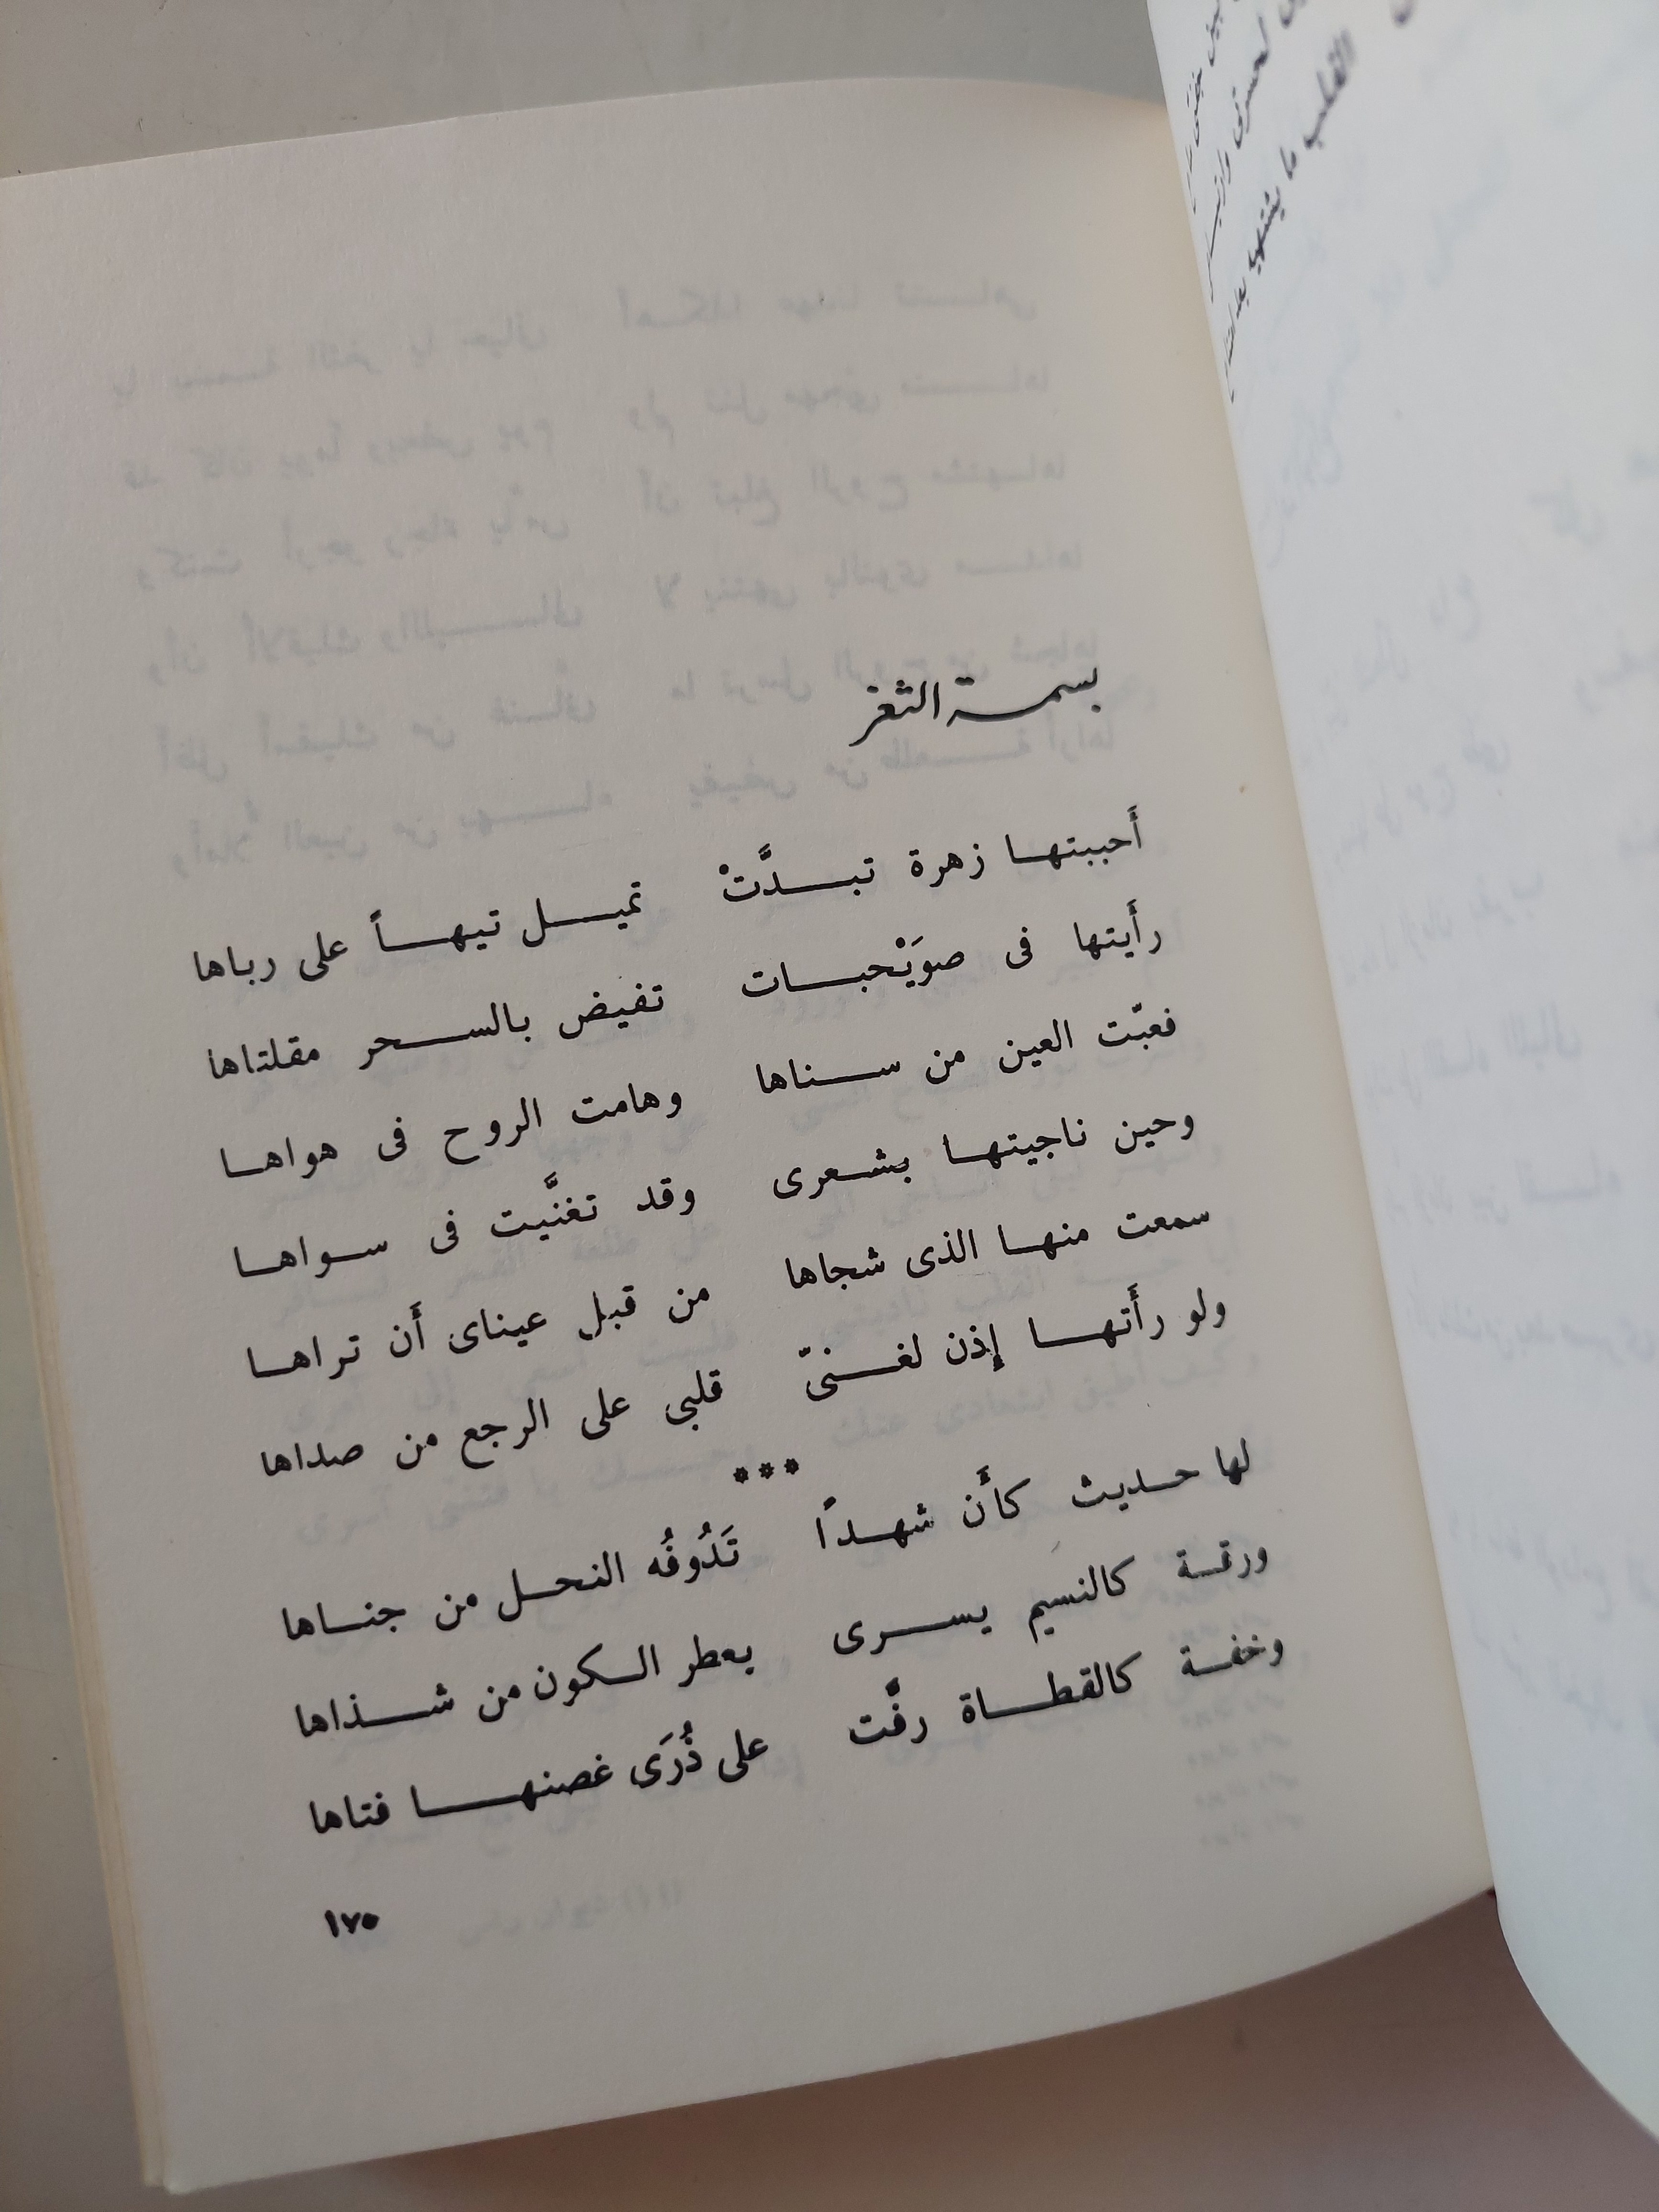 بسمة الثغر
أَحببتها زهرة تبدَّتْ تميل تيهاً على رباها
رأَيتها فى صوَيْحبات تفيض بالسحر مقلتاها
فعبّت العين من سناها وهامت الروح فى هواها
وحين ناجيتها بشعرى وقد تغنَّيت فى سواها
سمعت منها الذى شجاها من قبل عيناى أَن تراها
ولو رأَتها إذن لغنىّ قلبي على الرجع من صداها
***
لها حديث كأَن شهداً تَدُوفُه النحل من جناها
ورقة كالنسيم يسرى يعطر الكون من شذاها
وخفة كالقطاة رفَّت على ذُرَى غصنها فتاها
١٧٥
القلب ما يشتهيه بعد